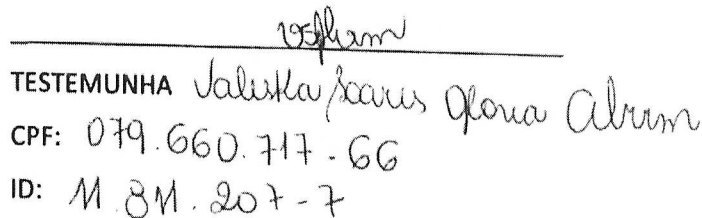 TESTEMUNHA Valeska Soares Gloria Abrum
CPF: 079.660.717-66
ID: 11.811.207-7